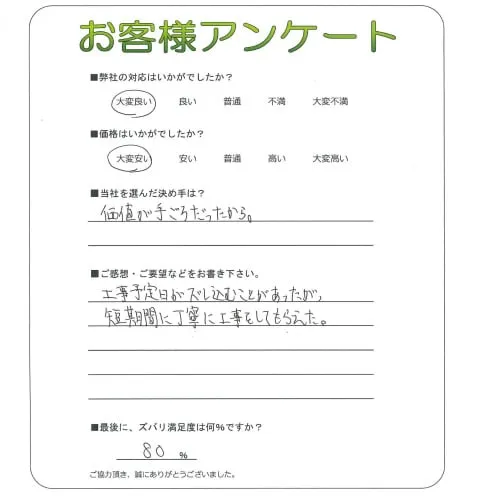 お客様アンケート
■弊社の対応はいかがでしたか？
大変良い 良い 普通 不満 大変不満
■価格はいかがでしたか？
大変安い 安い 普通 高い 大変高い
■当社を選んだ決め手は？
価値が手ごろだったから。
■ご感想・ご要望などをお書き下さい。
工事予定日がズレ込むことがあったが、
短期間に丁寧に工事をしてもらえた。
■最後に、ズバリ満足度は何％ですか？
80 ％
ご協力頂き、誠にありがとうございました。